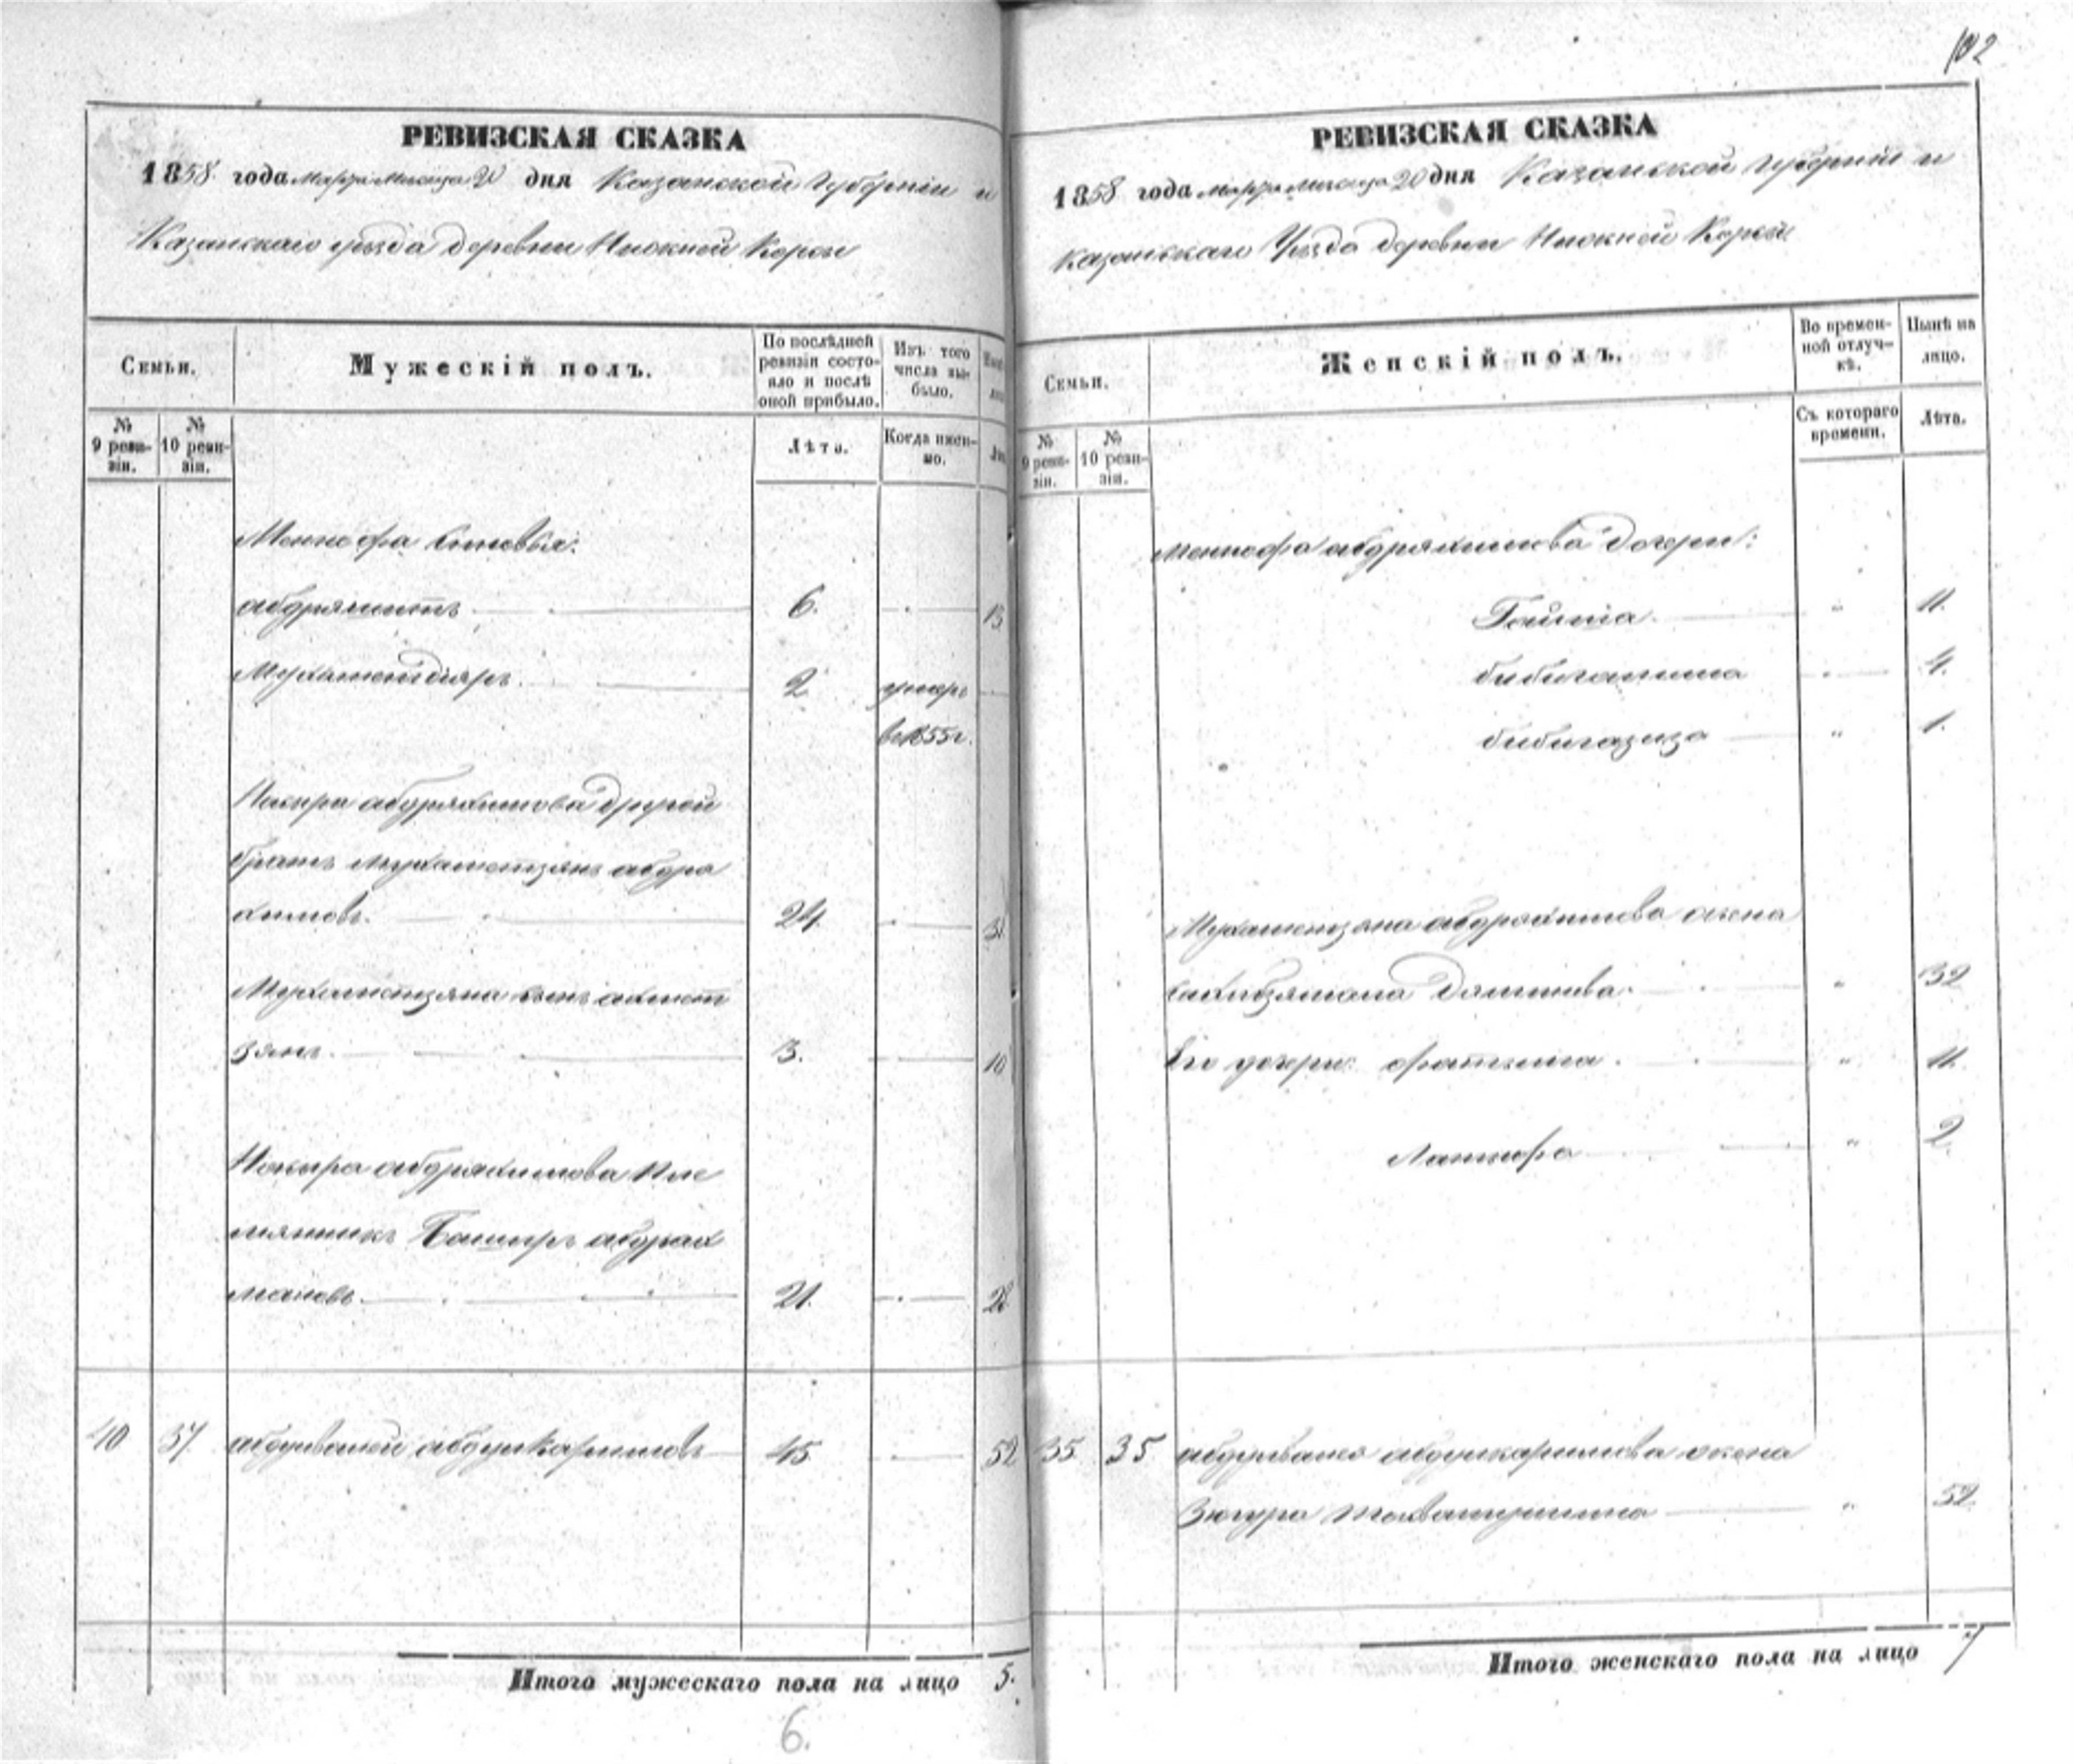 РЕВИЗСКАЯ СКАЗКА
1858 года марта месяца 20 дня Казанской губернiи и
Казанскаго уѣзда деревни Нижней Корсы
Семьи.
Мужескiй полъ.
По послѣдней ревизiи состояло и послѣ оной прибыло.
Изъ того числа выбыло.
№ 9 ревизiи.
№ 10 ревизiи.
Лѣта.
Когда именно.
сыновья:
6.
13
Мухаметдiяръ 2 умеръ
въ 1855 г.
абдряхимова другой
братъ Мухаметзянъ абдря
химовъ. 24. 31
Мухаметзяна сынъ ахмет
зянъ. 3. 10
абдряхимова пле
мянникъ Баширъ абдрах
мановъ. 21. 28
40 37 абдулкаримовъ 45 52
Итого мужескаго пола на лицо 5.
6.
РЕВИЗСКАЯ СКАЗКА
1858 года марта месяца 20 дня Казанской губернiи и
Казанскаго Уѣзда деревни Нижней Корсы
Семьи.
Женскiй полъ.
Во временной отлучкѣ.
Нынѣ на лицо.
№ 9 ревизiи.
№ 10 ревизiи.
Съ котораго времени.
Лѣта.
абдряхимова дочери:
" 11.
4.
бибигазиза " 1.
Мухаметзяна абдряхимова жена
" 32
Его дочери: фатьима " 11.
Латифа " 2.
35 35 абдулкаримова жена
Зюгура " 52.
Итого женскаго пола на лицо 7